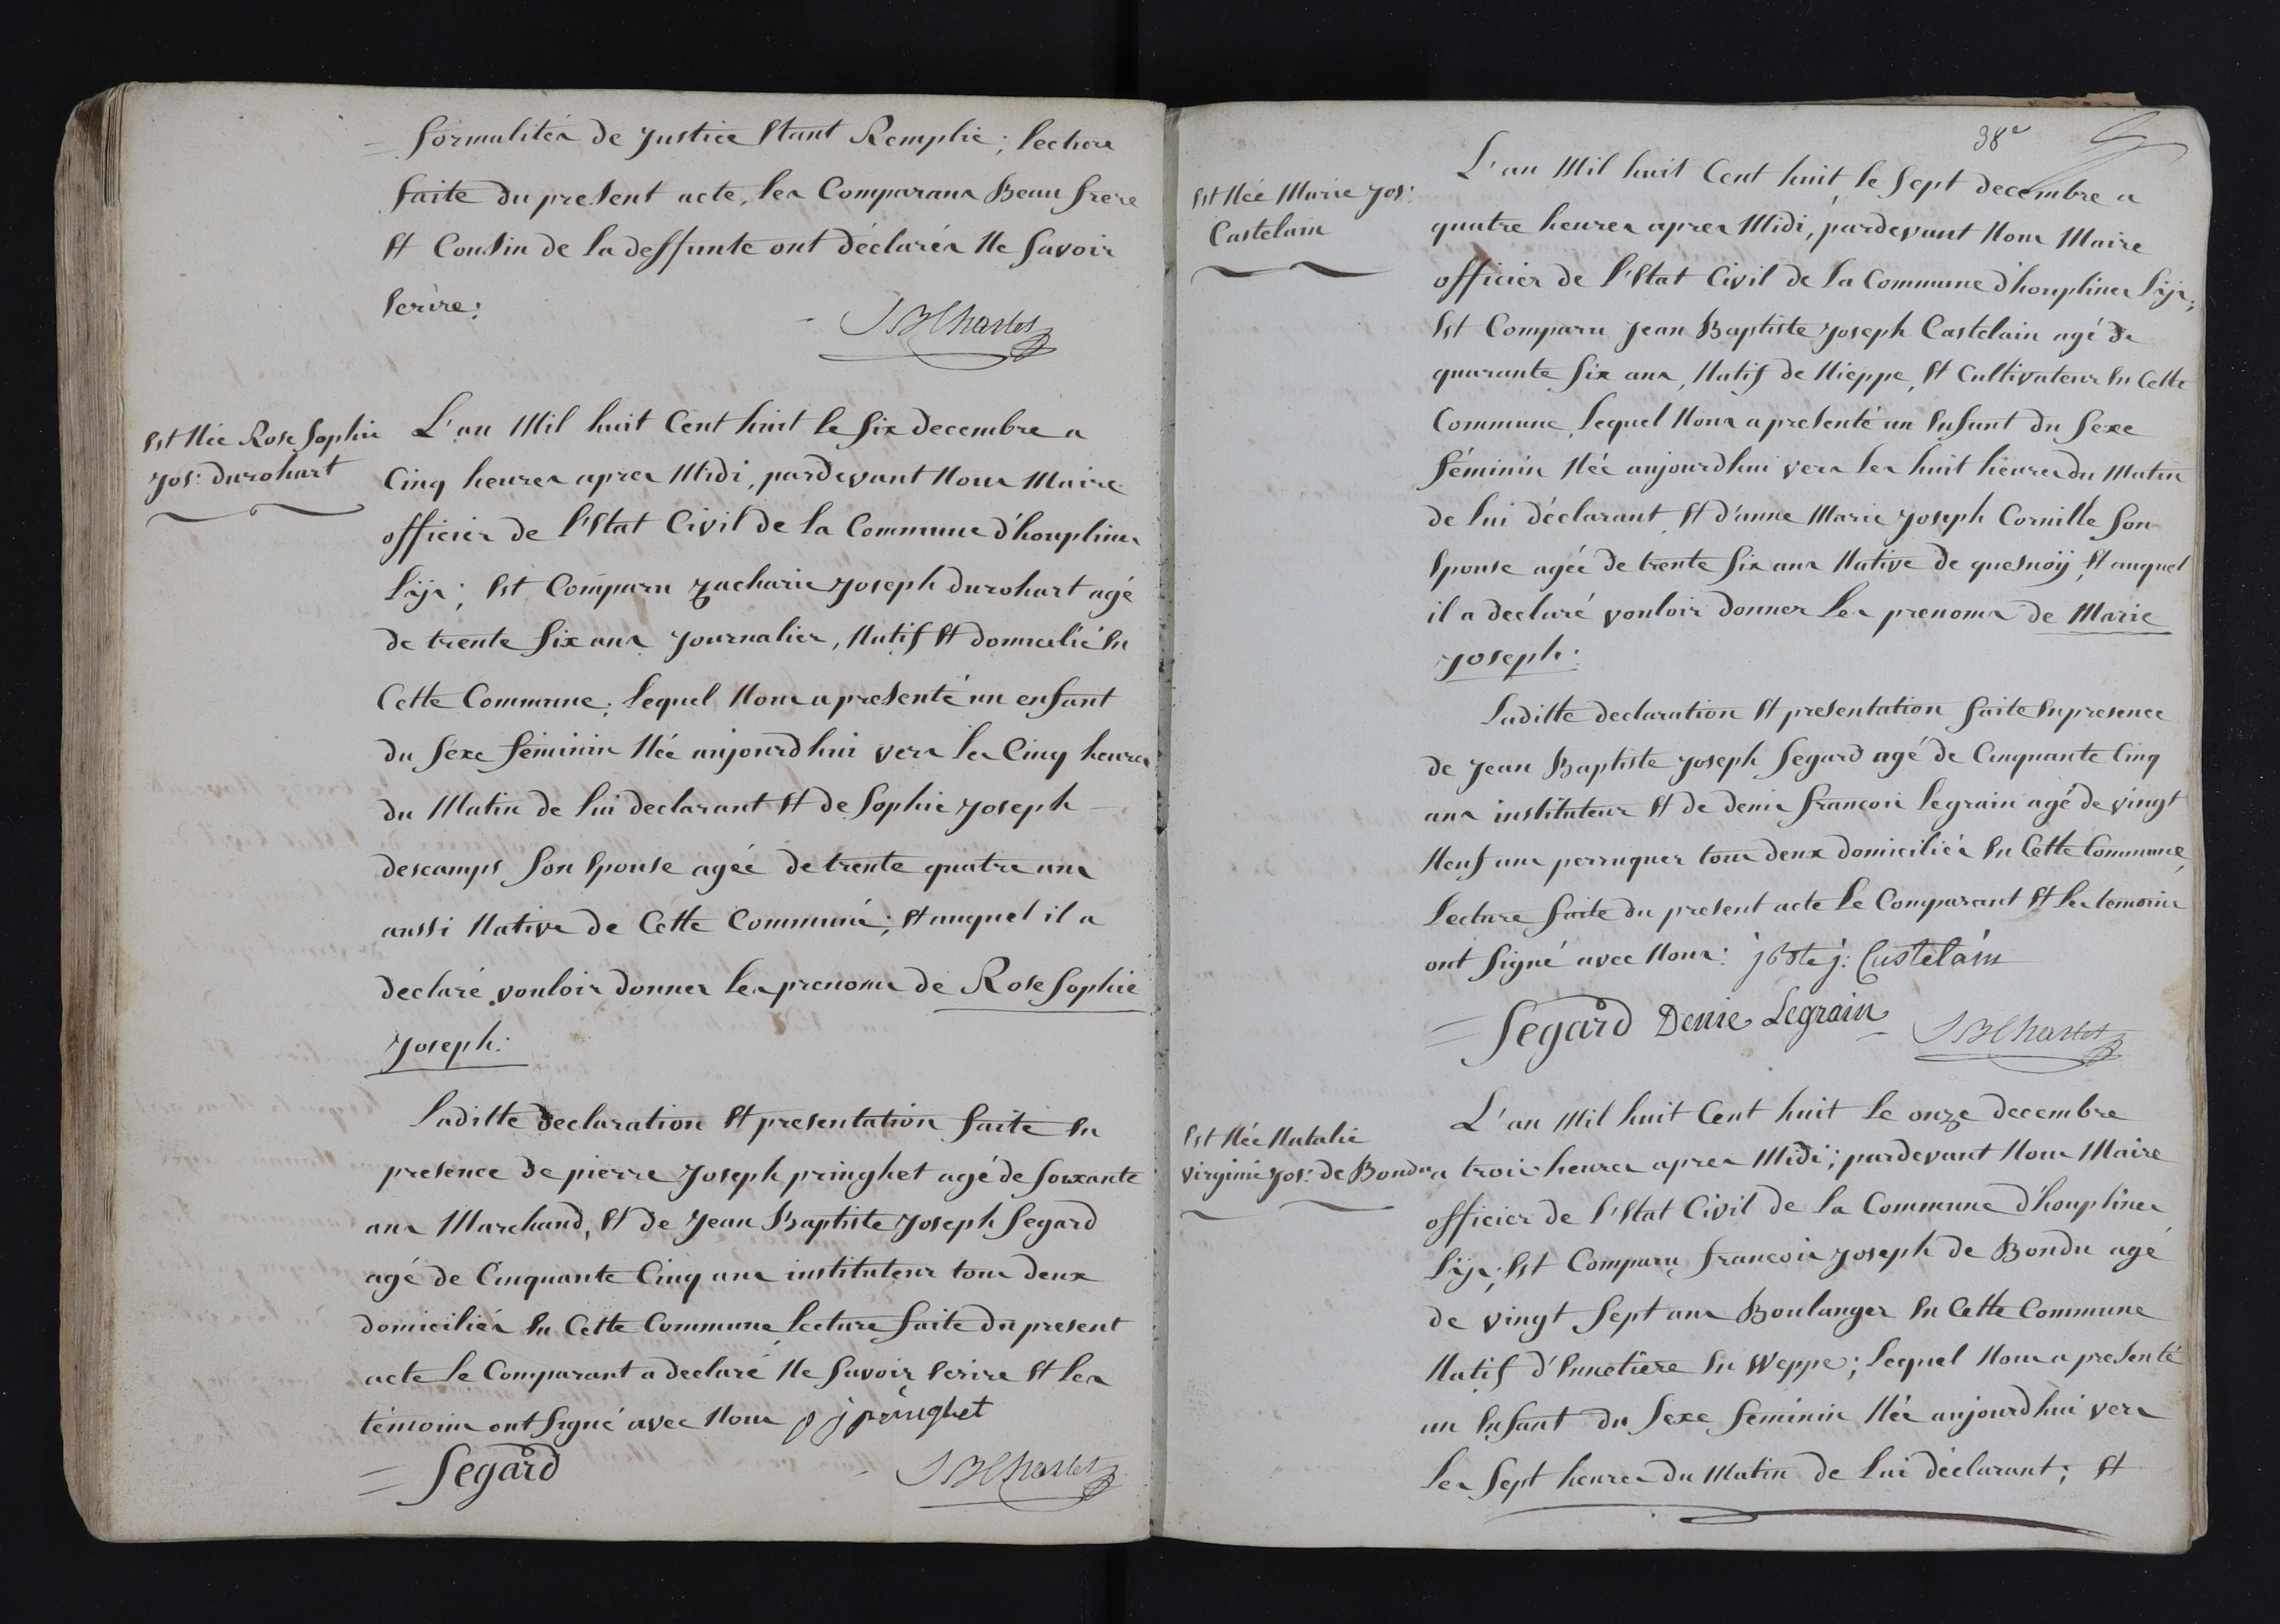 formalités de Justice Etant Remplie; lecture
faite du present acte, les Comparans Beau frere
Et Cousin de la deffunte ont déclarés Ne Savoir
Ecrire:
JBCharlet
Est Née Rose Sophie
Jos: durohart
L'an Mil huit Cent huit le Six decembre a
Cinq heures apres Midi, pardevant Nous Maire
officier de l'Etat Civil de la Commune d'houplines
Lÿs; Est Comparu Zacharie Joseph durohart agé
de trente Six ans Journalier, Natif Et domicilié En
Cette Commune; Lequel Nous a presenté un enfant
du Sexe féminin Née aujourdhui vers les Cinq heures
du Matin de lui declarant Et de Sophie Joseph
descamps Son Epouse agée de trente quatre ans
aussi Native de Cette Commune; Et auquel il a
declaré vouloir donner les prenoms de Rose Sophie
Joseph:
Laditte declaration Et presentation faite En
presence de pierre Joseph pringhet agé de Soixante
ans Marchand, Et de Jean Baptiste Joseph Segard
agé de Cinquante Cinq ans instituteur tous deux
domiciliés En Cette Commune, Lecture faite du present
acte le Comparant a declaré Ne Savoir Ecrire Et les
témoins ont Signé avec Nous p j pringhet
Segard
JBCharlet
38e
Est Née Marie Jos:
Castelain
L'an Mil huit Cent huit le Sept decembre a
quatre heures apres Midi, pardevant Nous Maire
officier de l'Etat Civil de la Commune d'houplines Lÿs;
Est Comparu Jean Baptiste Joseph Castelain agé de
quarante Six ans, Natif de Nieppe, Et Cultivateur En Cette
Commune, Lequel Nous a presenté un Enfant du Sexe
féminin Née aujourdhui vers les huit heures du Matin
de lui déclarant, Et d'anne Marie Joseph Cornille Son
Epouse agée de trente Six ans Native de quesnoÿ, Et auquel
il a declaré vouloir donner les prenoms de Marie
Joseph:
Laditte declaration Et presentation faite En presence
de Jean Baptiste Joseph Segard agé de Cinquante Cinq
ans instituteur Et de denis françois legrain agé de vingt
Neuf ans perruquer tous deux domiciliés En Cette Commune,
Lecture faite du present acte Le Comparant Et les temoins
ont Signé avec Nous: jbte j: Castelain
Segard Denie Legrain JBCharlet
Est Née Natalie
virginie Jos: de Bondu
L'an Mil huit Cent huit Le onze decembre
a trois heures apres Midi; pardevant Nous Maire
officier de l'Etat Civil de la Commune d'houplines
Lÿs; Est Comparu françois Joseph de Bondu agé
de vingt Sept ans Boulanger En Cette Commune
Natif d'Ennetiere En Weppe; Lequel Nous a presenté
un Enfant du Sexe feminin Née aujourdhui vers
les Sept heures du Matin de lui déclarant; Et